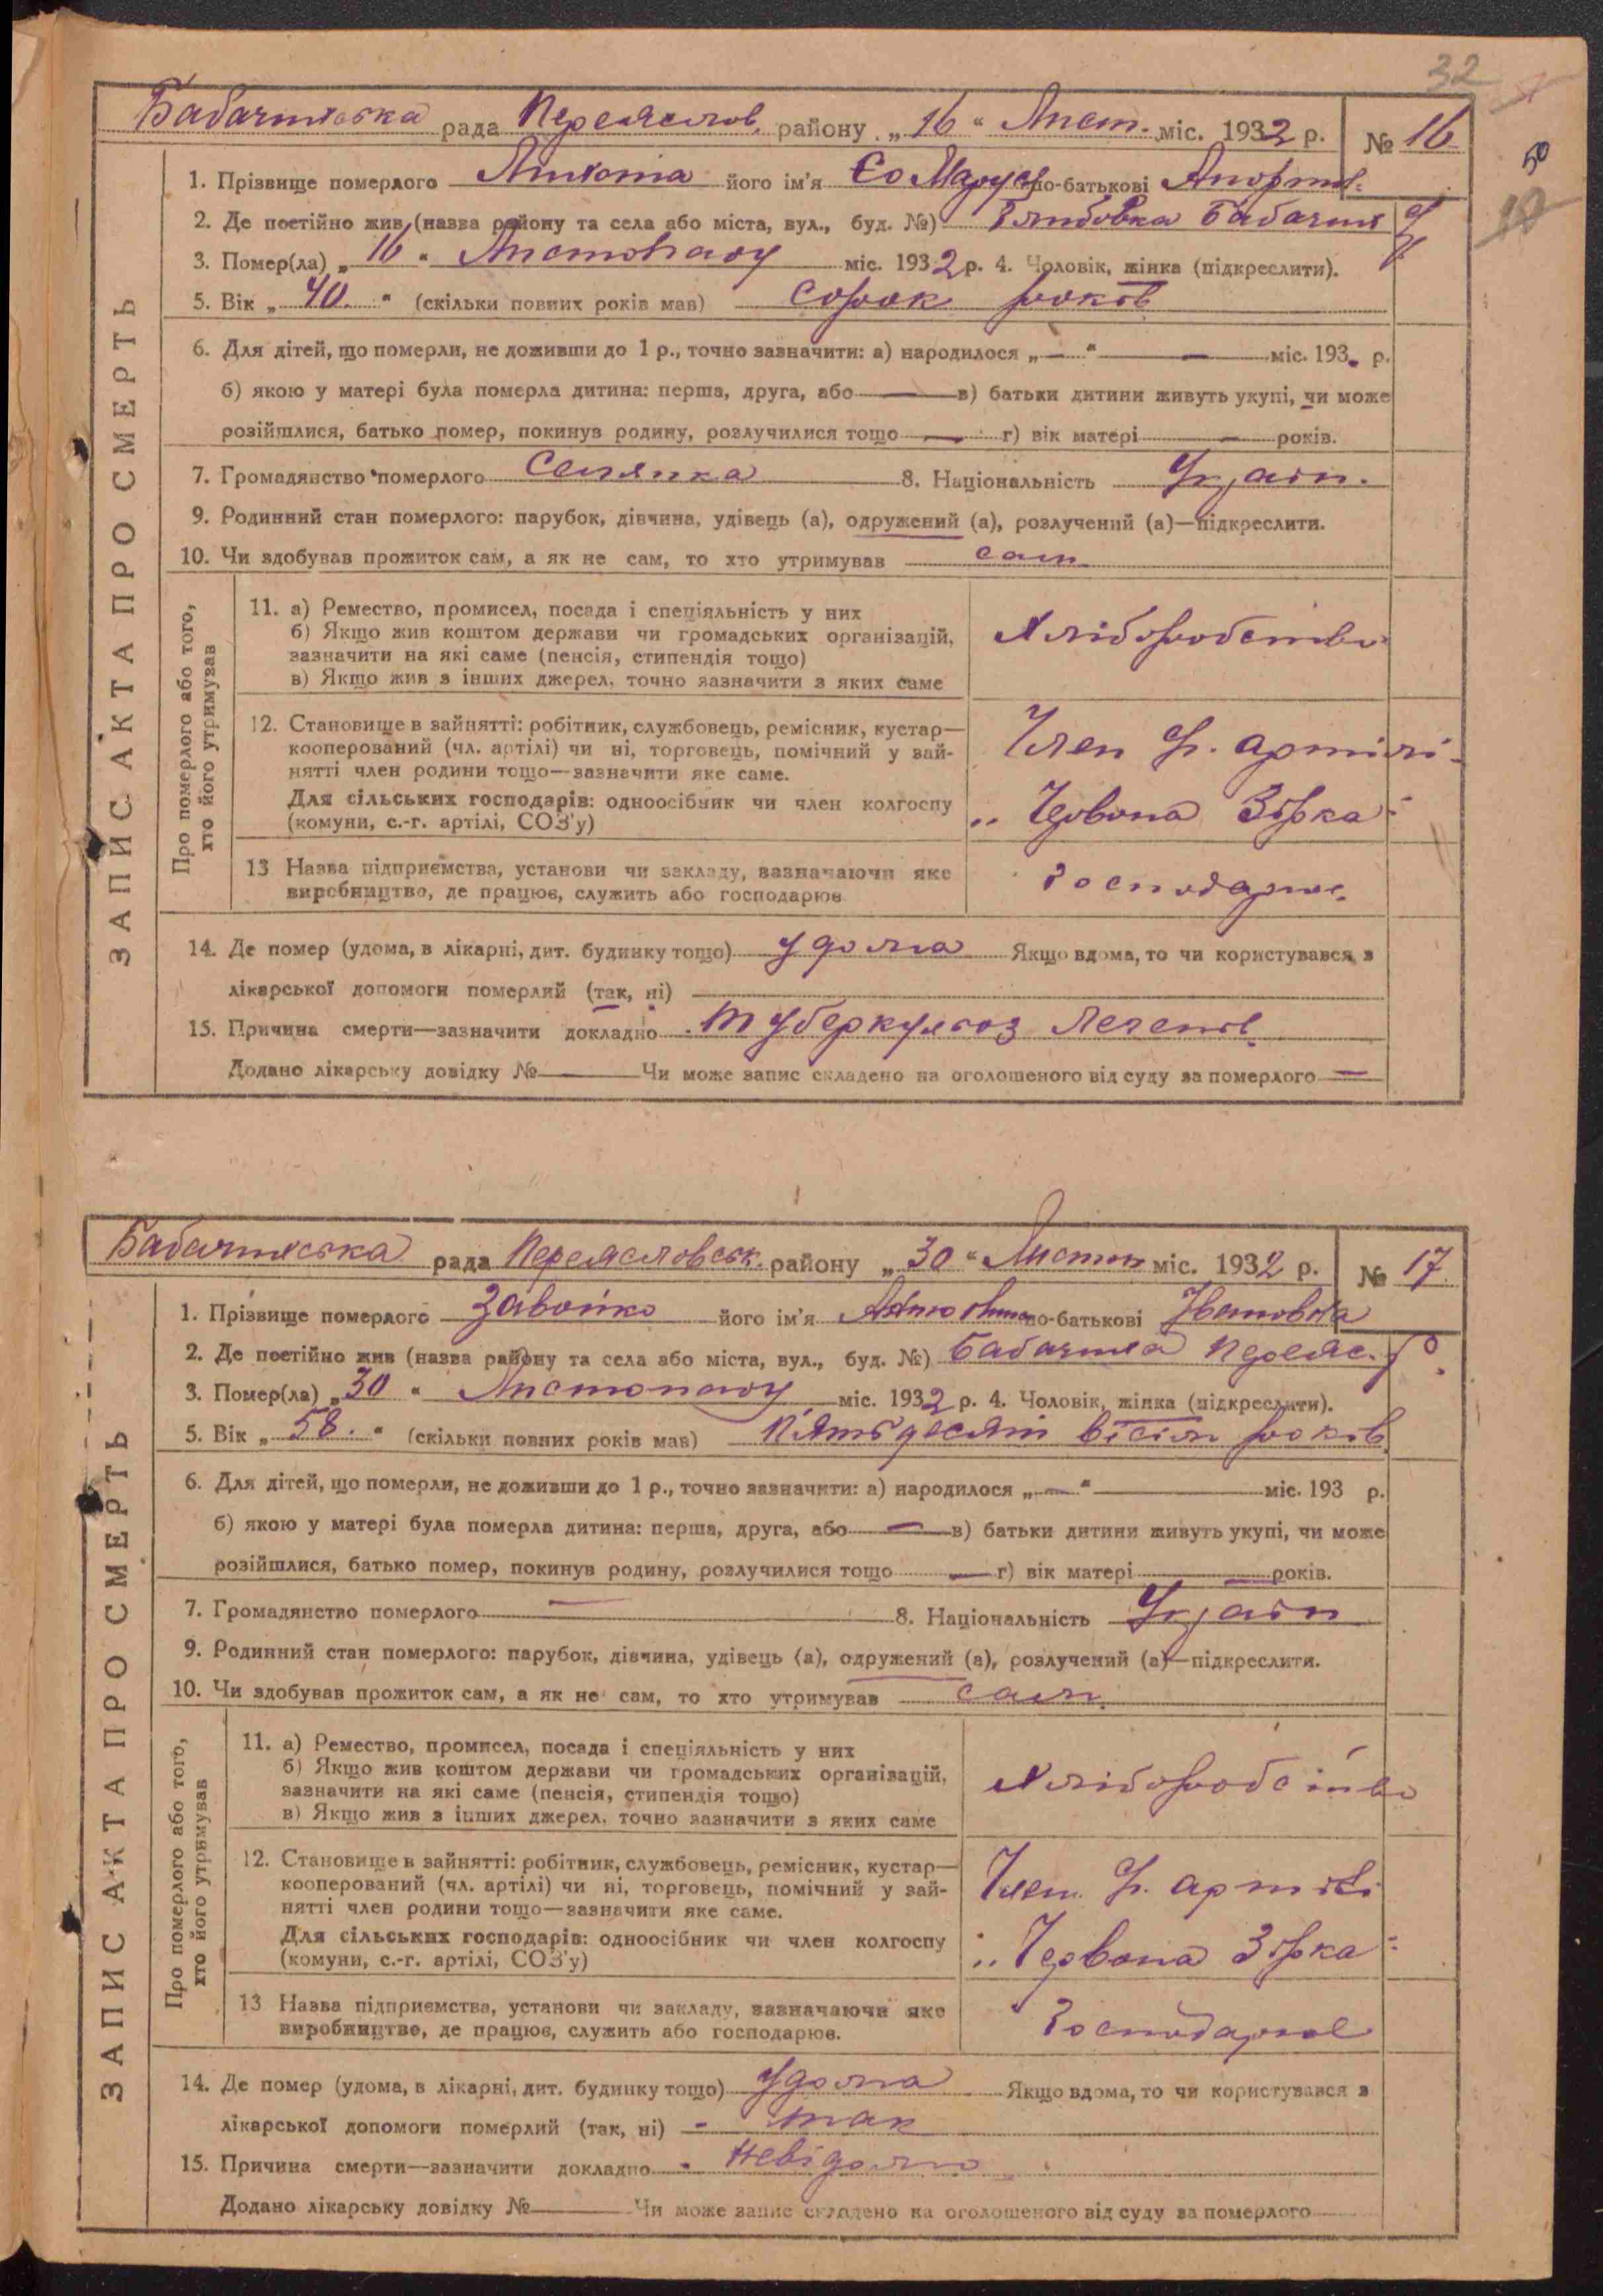 32
50
Бабачиївська рада Переяслов. району „16“ Лист. міс. 1932 р. № 16
1. Прізвище померлого його ім'я Маруся по-батькові
2. Де постійно жив (назва району та села або міста, вул., буд. №)
3. Помер(ла) „16“ Листопаду міс. 1932 р. 4. Чоловік, жінка (підкреслити).
5. Вік „40.“ (скільки повних років мав) сорок років
6. Для дітей, що померли, не доживши до 1 р., точно зазначити: а) народилося „—“ — міс. 193 р.
б) якою у матері була померла дитина: перша, друга, або — в) батьки дитини живуть укупі, чи може
розійшлися, батько помер, покинув родину, розлучилися тощо — г) вік матері — років.
7. Громадянство померлого Селянка 8. Національність Україн.
9. Родинний стан померлого: парубок, дівчина, удівець (а), одружений (а), розлучений (а)—підкреслити.
10. Чи здобував прожиток сам, а як не сам, то хто утримував сам
ЗАПИС АКТА ПРО СМЕРТЬ
Про померлого або того,
хто його утримував
11. а) Ремество, промисел, посада і спеціяльність у них
б) Якщо жив коштом держави чи громадських організацій,
зазначити на які саме (пенсія, стипендія тощо)
в) Якщо жив з інших джерел, точно зазначити з яких саме
Хліборобство
12. Становище в зайнятті: робітник, службовець, ремісник, кустар—
кооперований (чл. артілі) чи ні, торговець, помічний у зай-
нятті член родини тощо—зазначити яке саме.
Для сільських господарів: одноосібник чи член колгоспу
(комуни, с.-г. артілі, СОЗ'у)
Член артілі
„Червона Зірка“
13 Назва підприємства, установи чи закладу, зазначаючи яке
виробництво, де працює, служить або господарює
Господарює
14. Де помер (удома, в лікарні, дит. будинку тощо) удома Якщо вдома, то чи користувався з
лікарської допомоги померлий (так, ні)
15. Причина смерти—зазначити докладно Туберкульоз Легенів
Додано лікарську довідку №— Чи може запис складено на оголошеного від суду за померлого —
Бабачиївська рада Переясловськ. району „30“ Листоп міс. 1932 р. № 17
1. Прізвище померлого Завойко його ім'я по-батькові Івановна
2. Де постійно жив (назва району та села або міста, вул., буд. №) Переяс.
3. Помер(ла) „30“ Листопаду міс. 1932 р. 4. Чоловік, жінка (підкреслити).
5. Вік „58.“ (скільки повних років мав) П'ятьдесят вісім років
6. Для дітей, що померли, не доживши до 1 р., точно зазначити: а) народилося „—“ міс. 193 р.
б) якою у матері була померла дитина: перша, друга, або — в) батьки дитини живуть укупі, чи може
розійшлися, батько помер, покинув родину, розлучилися тощо — г) вік матері років.
7. Громадянство померлого — 8. Національність Україн
9. Родинний стан померлого: парубок, дівчина, удівець (а), одружений (а), розлучений (а)—підкреслити.
10. Чи здобував прожиток сам, а як не сам, то хто утримував сам
ЗАПИС АКТА ПРО СМЕРТЬ
Про померлого або того,
хто його утримував
11. а) Ремество, промисел, посада і спеціяльність у них
б) Якщо жив коштом держави чи громадських організацій,
зазначити на які саме (пенсія, стипендія тощо)
в) Якщо жив з інших джерел, точно зазначити з яких саме
Хліборобство
12. Становище в зайнятті: робітник, службовець, ремісник, кустар—
кооперований (чл. артілі) чи ні, торговець, помічний у зай-
нятті член родини тощо—зазначити яке саме.
Для сільських господарів: одноосібник чи член колгоспу
(комуни, с.-г. артілі, СОЗ'у)
Член артілі
„Червона Зірка“
13 Назва підприємства, установи чи закладу, зазначаючи яке
виробництво, де працює, служить або господарює.
Господарює
14. Де помер (удома, в лікарні, дит. будинку тощо) Удома Якщо вдома, то чи користувався з
лікарської допомоги померлий (так, ні) - так
15. Причина смерти—зазначити докладно - Невідомо
Додано лікарську довідку №— Чи може запис складено на оголошеного від суду за померлого